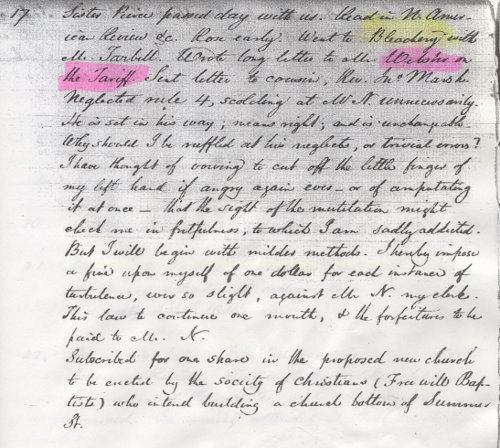 17. Sister Peirce passed day with us. Read in N. Amer-
ican Review &c Rose early. Went to Bleachery with
Mr. Tarbell. Wrote long letter to Mr. on
the Tariff. Sent letter to cousin, Rev. Jno. Marsh.
Neglected rule 4, scolding at Mr N. unnecessarily.
He is set in his way; means right; and is unchangeable.
Why should I be ruffled at his neglects, or trivial errors?
I have thought of vowing to cut off the little finger of
my left hand if angry again ever — or of amputating
it at once — that the sight of the mutilation might
check me in fretfulness, to which I am sadly addicted.
But I will begin with milder methods. I hereby impose
a fine upon myself of one dollar for each instance of
turbulence, ever so slight, against Mr. N. my clerk.
This law to continue one month, & the forfeitures to be
paid to Mr. N.
Subscribed for one share in the proposed new church
to be erected by the society of christians (Free will Bap-
tists) who intend building a church bottom of Summer
St.